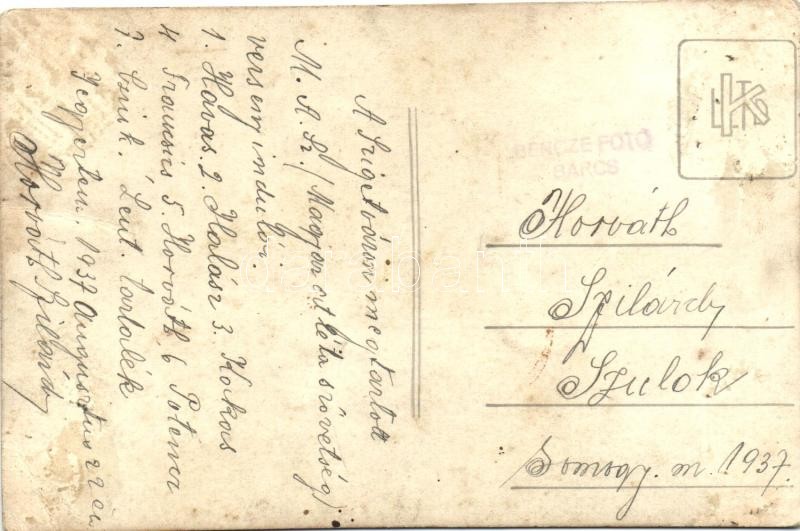 A Szigetváron megtartott
M. A. Sz. (Magyar atléta szövetség)
versem indulói.
1. Havas 2. Halász 3. Kokas
4 Francsis 5. Horváth 6 Potema
7. Cznik. Leut. tartalék
1937 Augusztus 22 én
Horváth Szilárdy
BENCZE FOTÓ
BARCS
Horváth
Szilárdy
Szulok
Somogy. m. 1937.